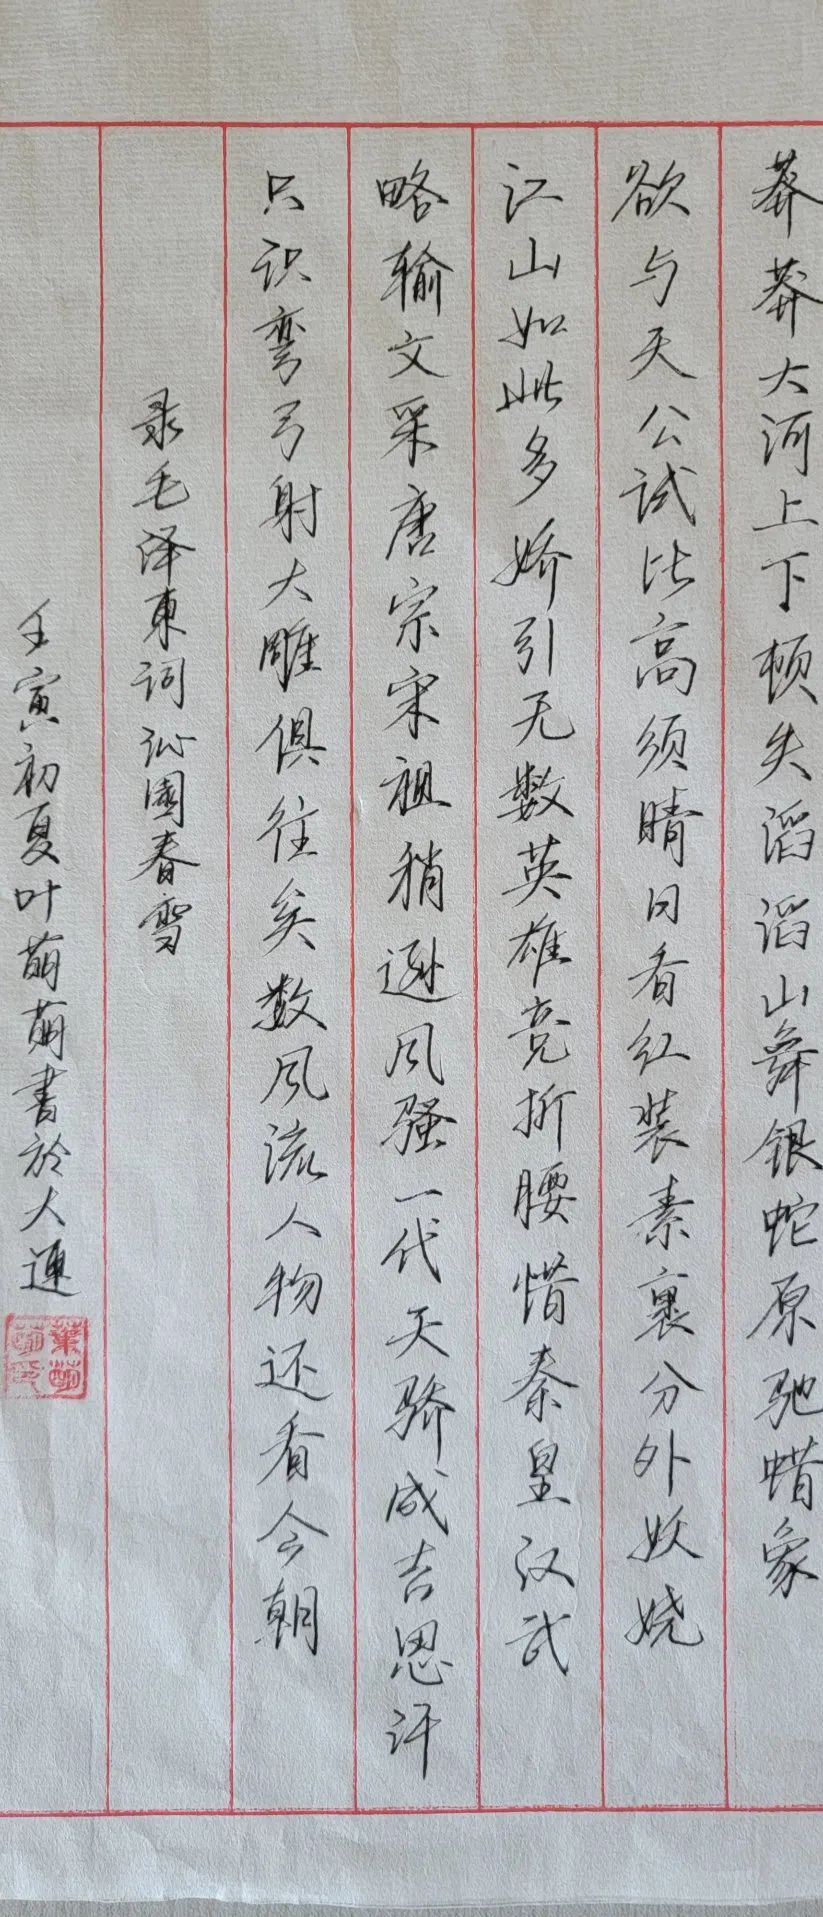 莽莽大河上下顿失滔滔山舞银蛇原驰蜡象
欲与天公试比高须晴日看红装素裹分外妖娆
江山如此多娇引无数英雄竞折腰惜秦皇汉武
略输文采唐宗宋祖稍逊风骚一代天骄成吉思汗
只识弯弓射大雕俱往矣数风流人物还看今朝
录毛泽东词沁園春雪
壬寅初夏叶萌萌書於大連
葉萌
萌印